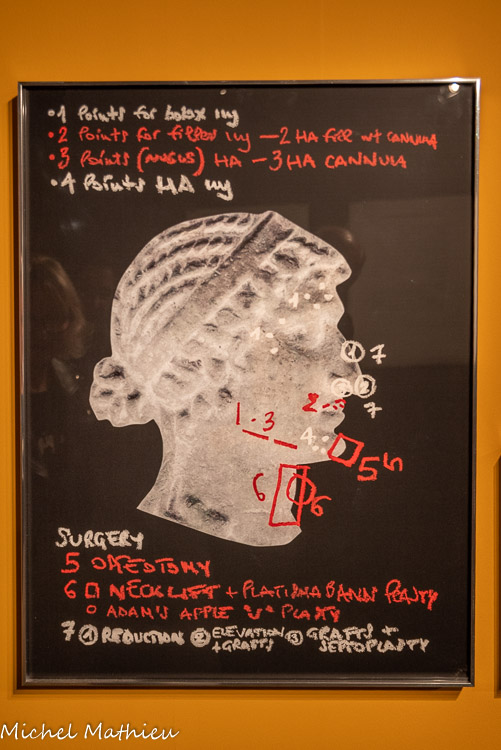 •1 Points for botox inj
•2 Points for filler inj — 2 HA fill wt CANNULA
•3 Points (ANGUS) HA — 3 HA CANNULA
•4 Points HA inj
1
1 7
3 2
2 7
1 - 3
4
5
6 6
SURGERY
5 OSTEOTOMY
6 □ NECK LIFT + PLATISMA BAND PLASTY
○ ADAM'S APPLE "V" PLASTY
7 ① REDUCTION ② ELEVATION + GRAFTS ③ GRAFTS + SEPTOPLASTY
Michel Mathieu